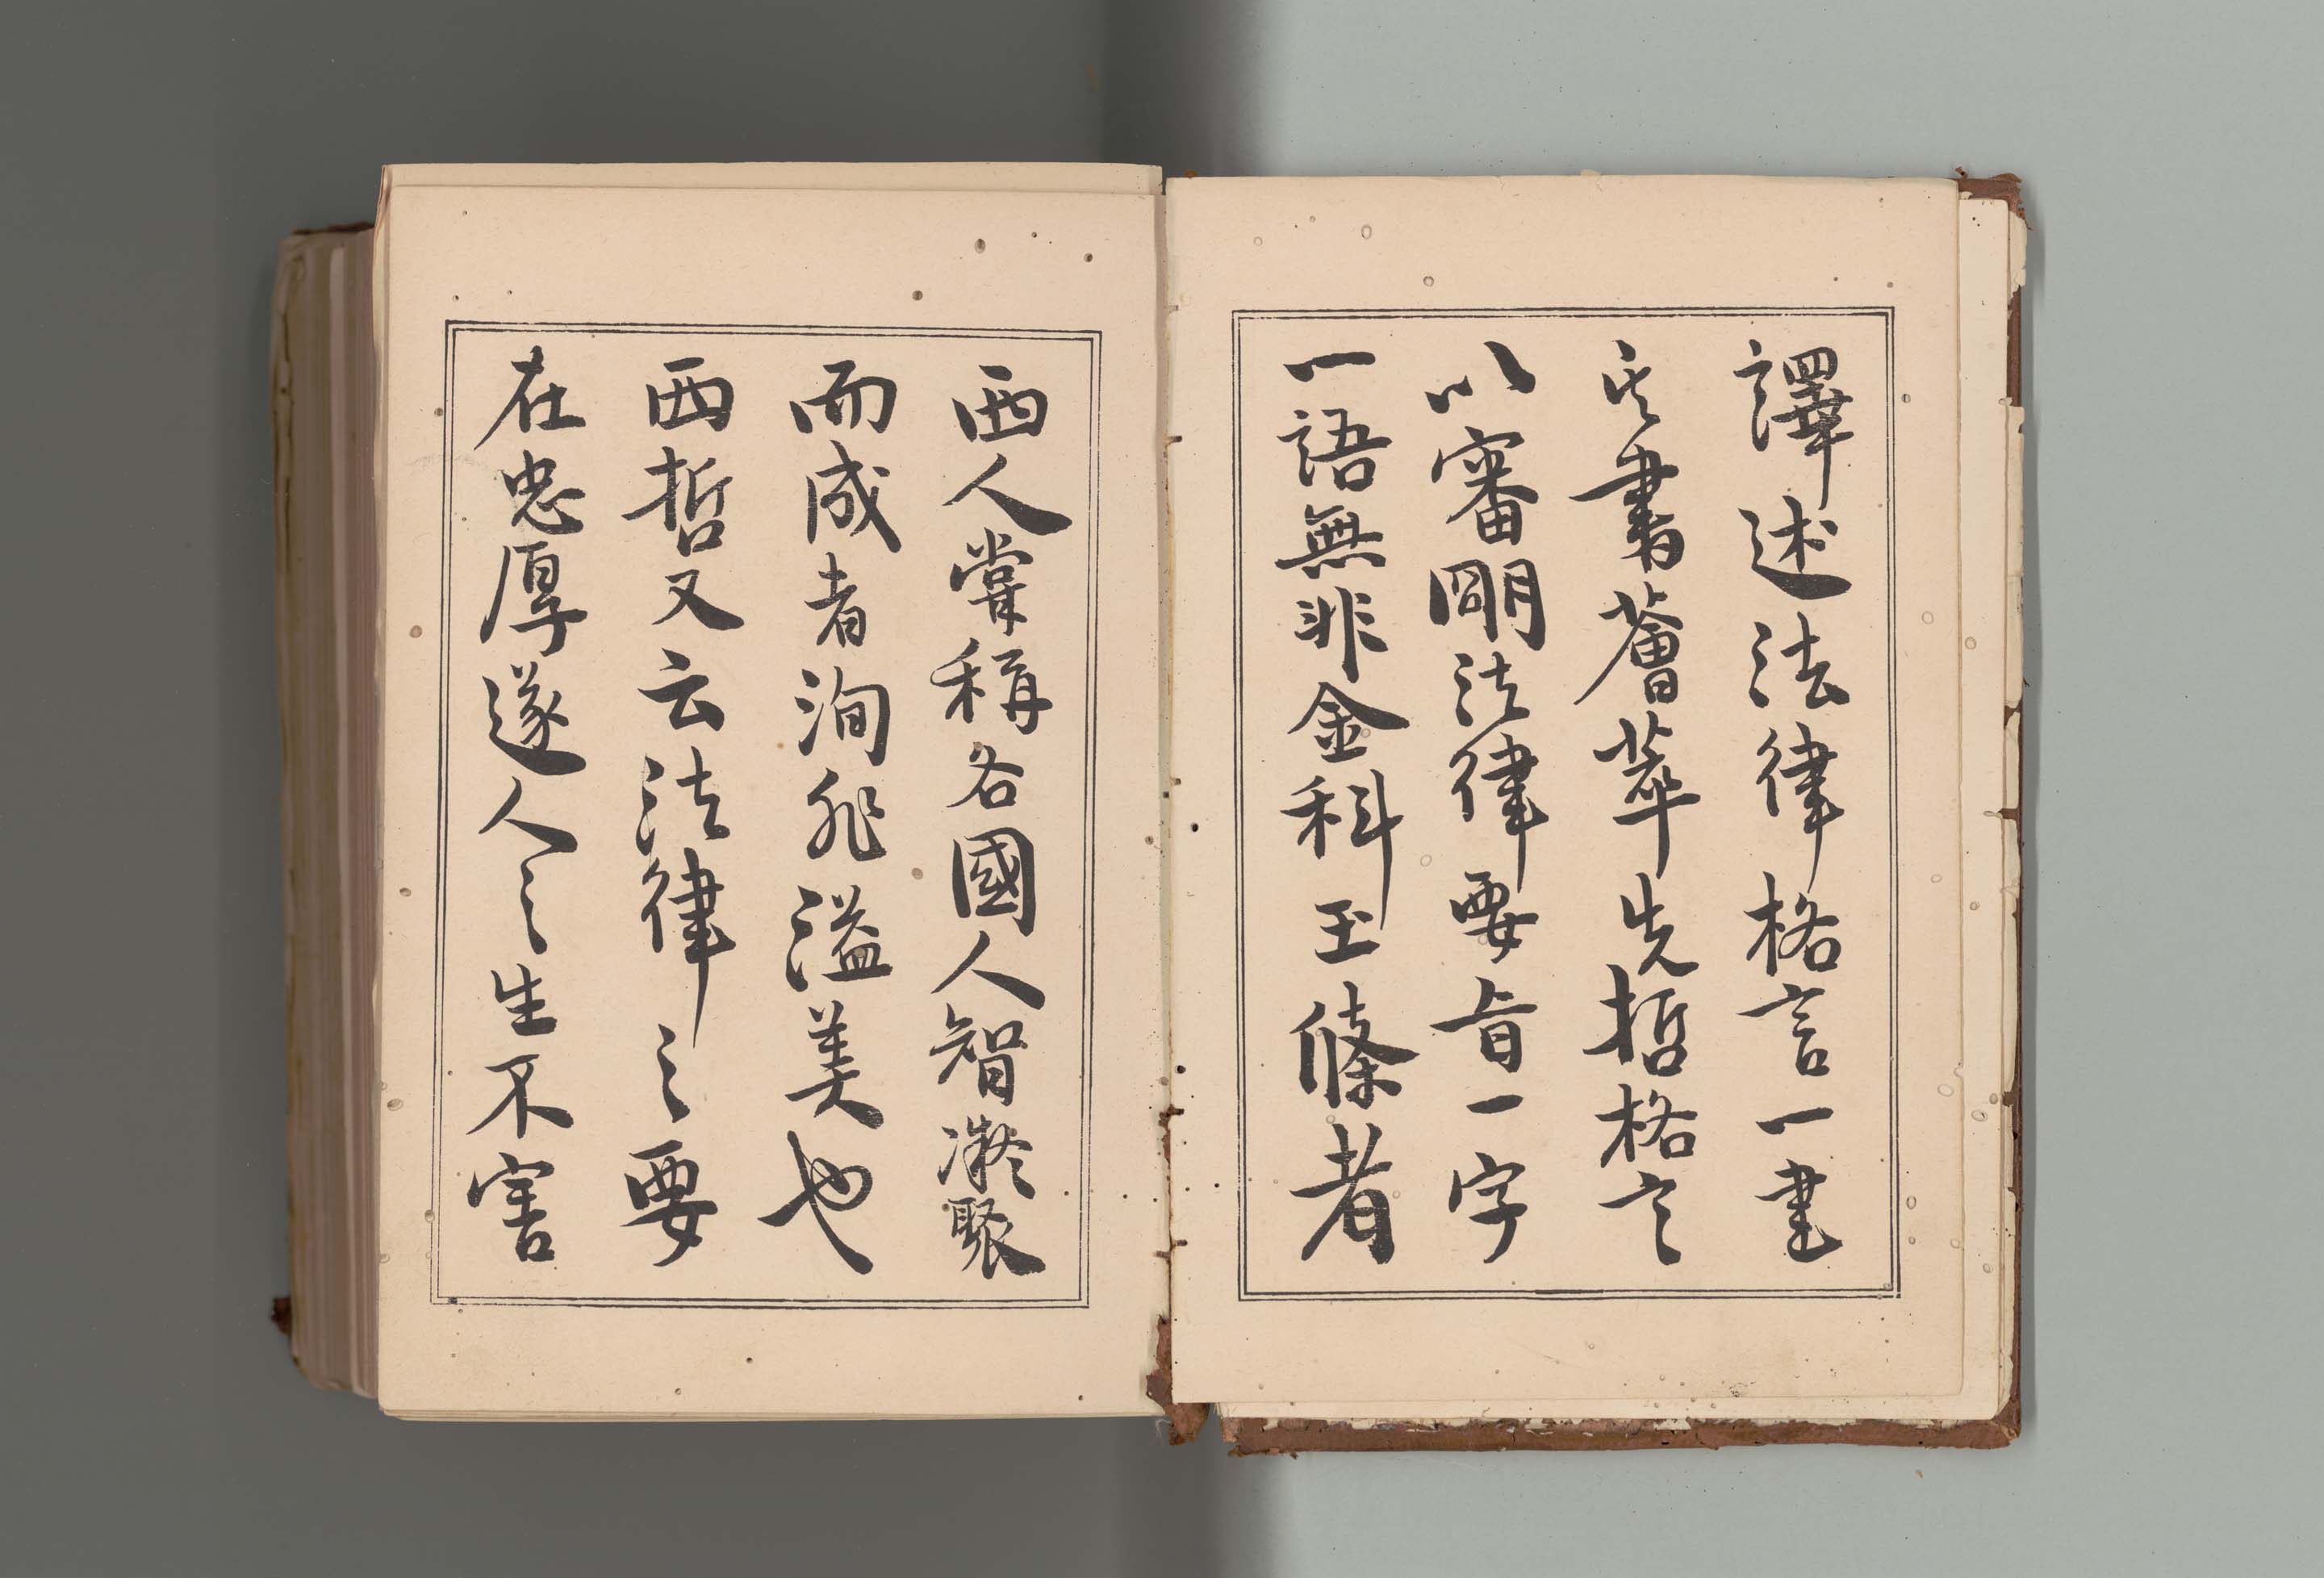 譯述法律格言一書
其書薈萃先哲格言
以審明法律要旨一字
一語無非金科玉條者
西人嘗稱各國人智凝聚
而成者洵非溢美也
西哲又云法律之要
在忠厚遂人之生不害